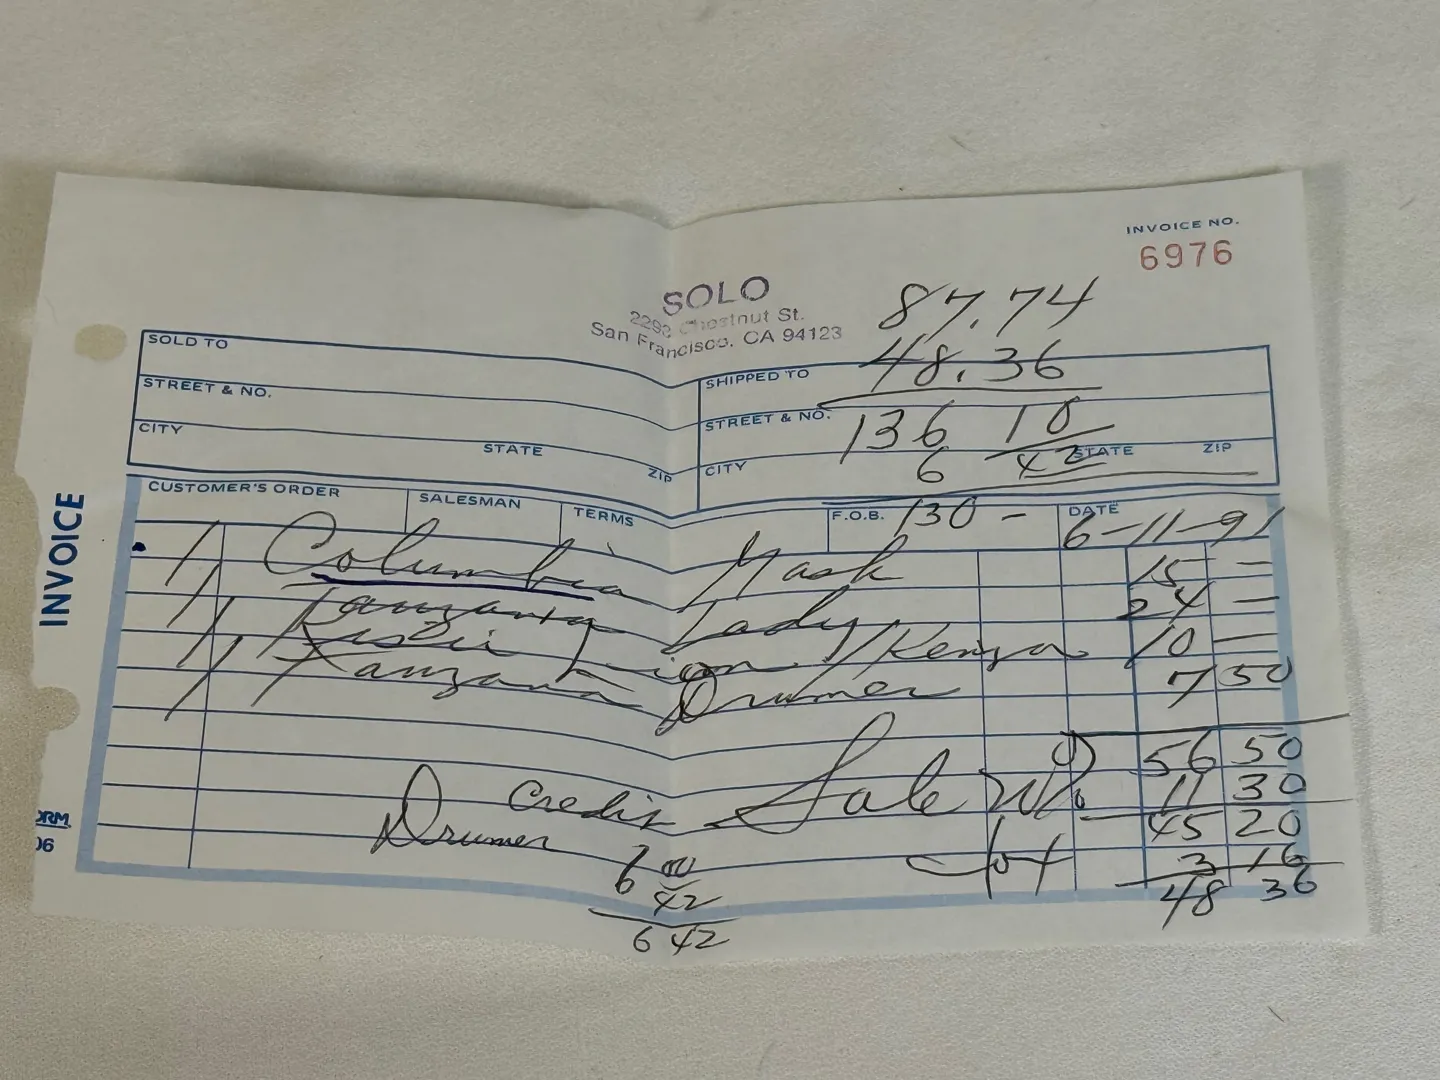 INVOICE NO.
6976
SOLO
2292 Chestnut St.
San Francisco. CA 94123
87.74
48.36
136 10
6 42
130 -
SOLD TO
STREET & NO.
CITY STATE ZIP
SHIPPED TO
STREET & NO.
CITY STATE ZIP
INVOICE
CUSTOMER'S ORDER SALESMAN TERMS F.O.B. DATE
6-11-91
1 Columbia Mask 15 -
1 Tanzania Lady 24 -
1 Lion / Kenya 10 -
1 Tanzana Drumer 7 50
56 50
Sale 20% 11 30
45 20
Credit
Drumer
6 00
42
6 42
3 16
48 36
ORM
06